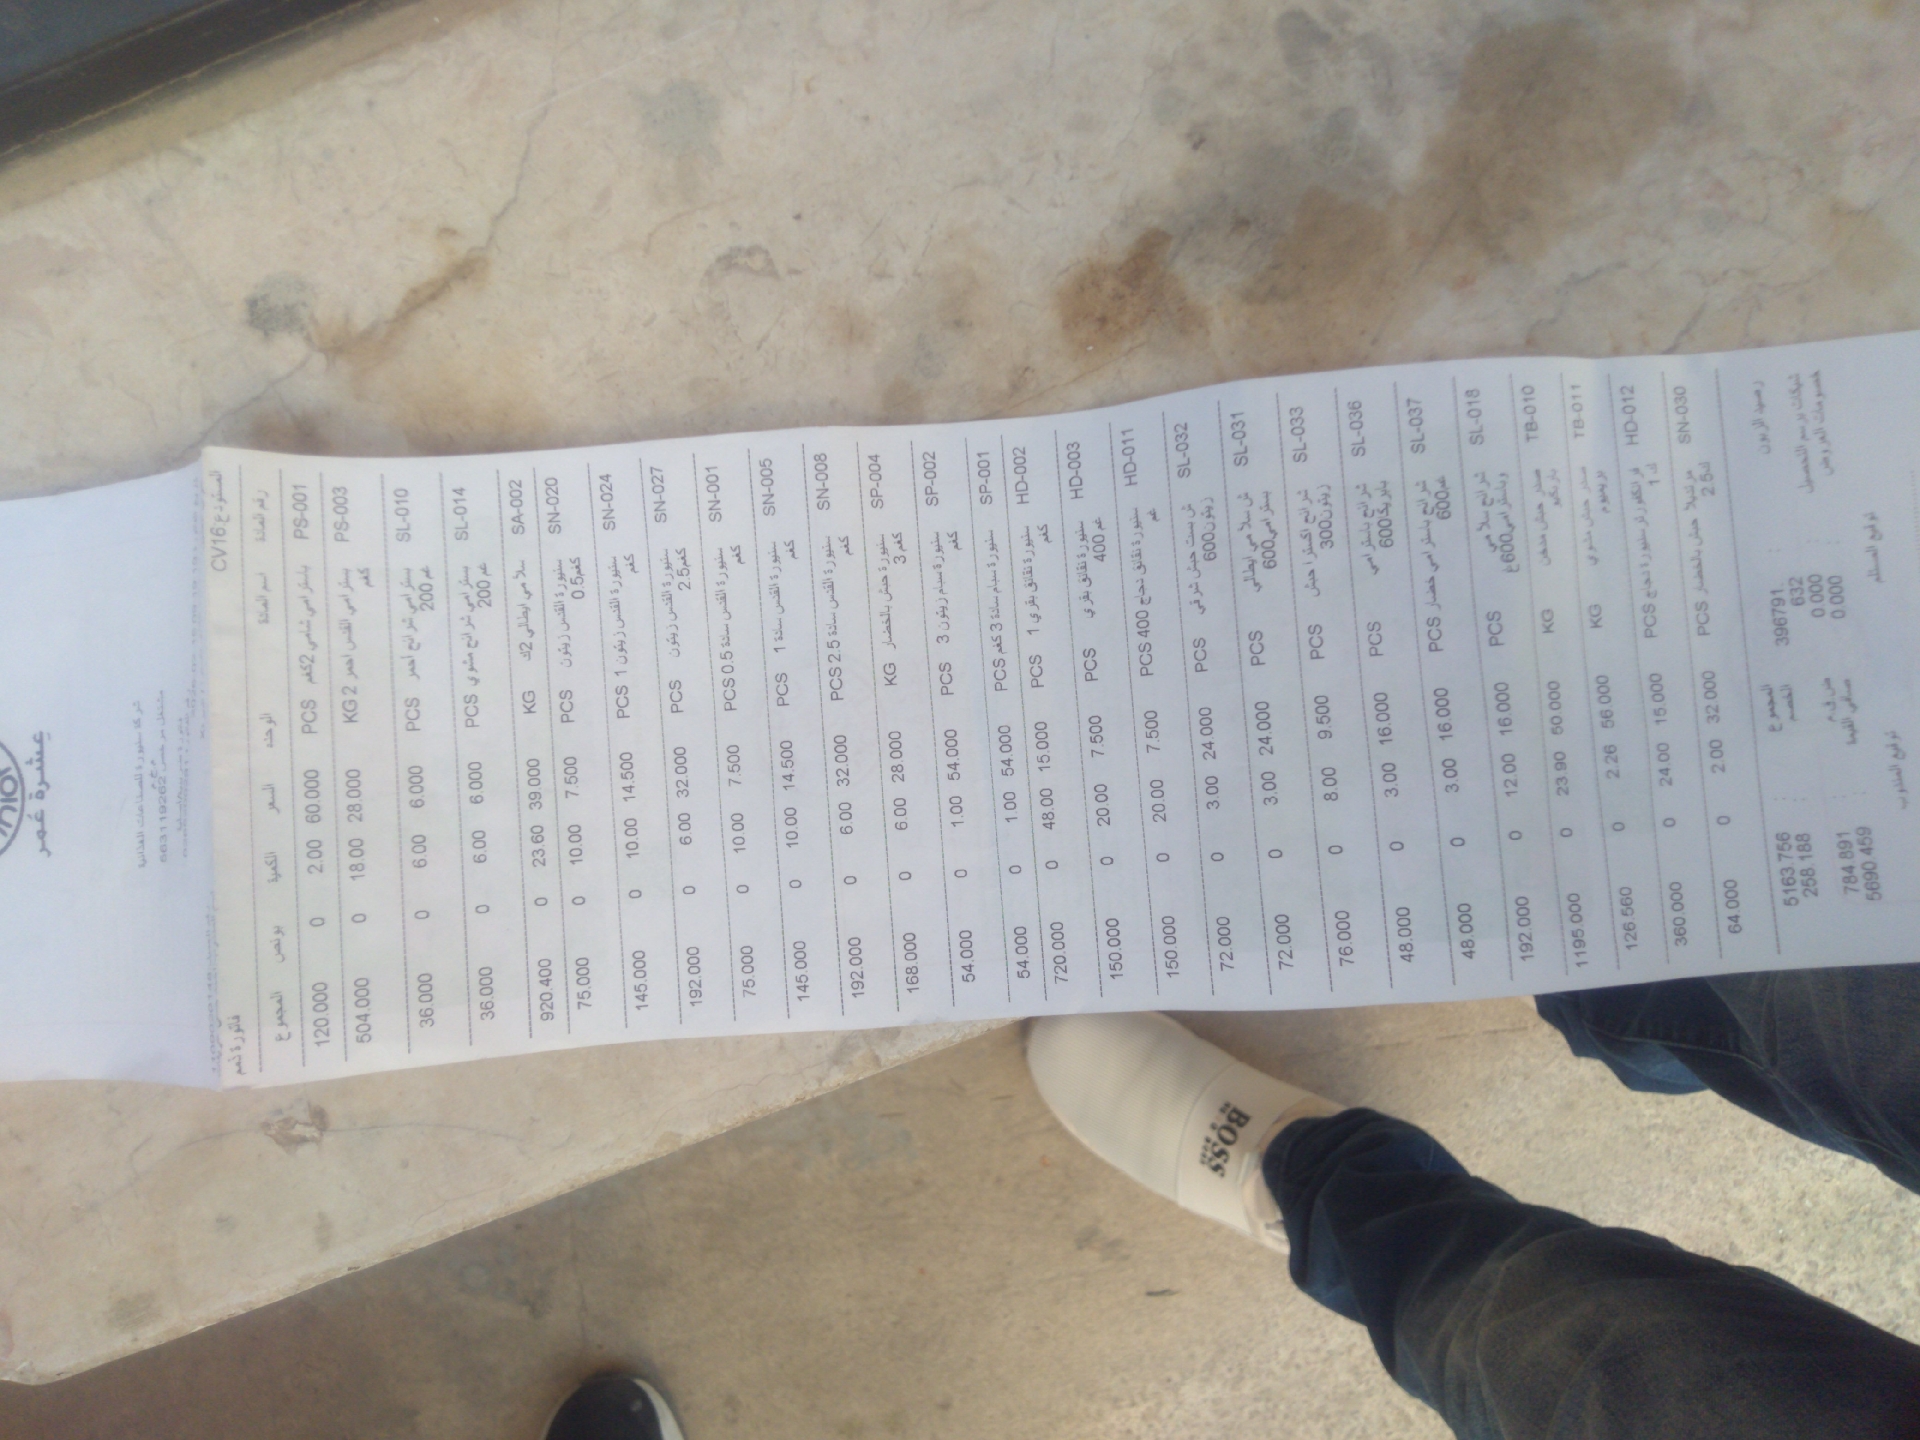 عشرة عُمر
563119262
فاتورة ذمم المستودع CV16
رقم المادة اسم المادة الوحده السعر الكمية بونص المجموع
PS-001 باسترامي شامي 2كغم PCS 60.000 2.00 0 120.000
PS-003 بسترامي القدس احمر KG 2 28.000 18.00 0 504.000
كغم
SL-010 بسترامي شرائح احمر PCS 6.000 6.00 0 36.000
200 غم
SL-014 بسترامي شرائح مشوي PCS 6.000 6.00 0 36.000
200 غم
SA-002 سلامي ايطالي 2ك KG 39.000 23.60 0 920.400
SN-020 سنيورة القدس زيتون PCS 7.500 10.00 0 75.000
0.5كغم
SN-024 سنيورة القدس زيتون 1 PCS 14.500 10.00 0 145.000
كغم
SN-027 سنيورة القدس زيتون PCS 32.000 6.00 0 192.000
2.5كغم
SN-001 سنيورة القدس سادة 0.5 PCS 7.500 10.00 0 75.000
كغم
SN-005 سنيورة القدس سادة 1 PCS 14.500 10.00 0 145.000
كغم
SN-008 سنيورة القدس سادة 2.5 PCS 32.000 6.00 0 192.000
كغم
SP-004 سنيورة حبش بالخضار KG 28.000 6.00 0 168.000
3 كغم
SP-002 سنيورة سبام زيتون 3 PCS 54.000 1.00 0 54.000
كغم
SP-001 سنيورة سبام سادة 3 كغم PCS 54.000 1.00 0 54.000
HD-002 سنيورة نقانق بقري 1 PCS 15.000 48.00 0 720.000
كغم
HD-003 سنيورة نقانق بقري PCS 7.500 20.00 0 150.000
400 غم
HD-011 سنيورة نقانق دجاج 400 PCS 7.500 20.00 0 150.000
غم
SL-032 ش بست حبش شرقي PCS 24.000 3.00 0 72.000
زيتون600
SL-031 ش سلامي ايطالي PCS 24.000 3.00 0 72.000
بسترامي600
SL-033 شرائح اكسترا حبش PCS 9.500 8.00 0 76.000
زيتون300
SL-036 شرائح باسترامي PCS 16.000 3.00 0 48.000
بابريكا600
SL-037 شرائح باسترامي خضار PCS 16.000 3.00 0 48.000
600غم
SL-018 شرائح سلامي PCS 16.000 12.00 0 192.000
وباسترامي600غ
TB-010 صدر حبش مدخن KG 50.000 23.90 0 1195.000
باربكيو
TB-011 صدر حبش مشوي KG 56.000 2.26 0 126.560
بريميوم
HD-012 فرانكفورتر سنيورة دجاج PCS 15.000 24.00 0 360.000
1 ك
SN-030 مرتديلا حبش بالخضار PCS 32.000 2.00 0 64.000
2.5ك
رصيد الزبون : 396791 المجموع : 5163.756
632 الخصم : 258.188
شيكات برسم التحصيل : 0.000 ض.ق.م : 784.891
خصومات العروض : 0.000 صافي القيمة : 5690.459
توقيع المستلم توقيع المندوب
BOSS